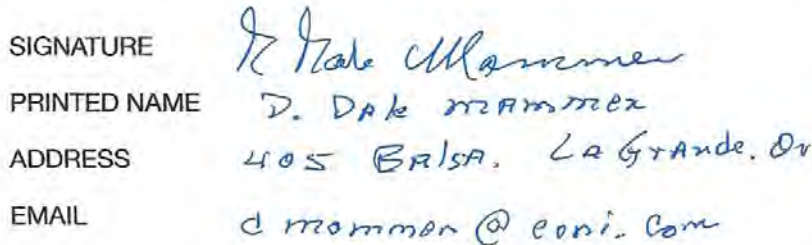 SIGNATURE D Dale Mammen
PRINTED NAME D. DAle mammen
ADDRESS 405 BAlsA. LA GrAnde. Or
EMAIL dmammen@eoni.com